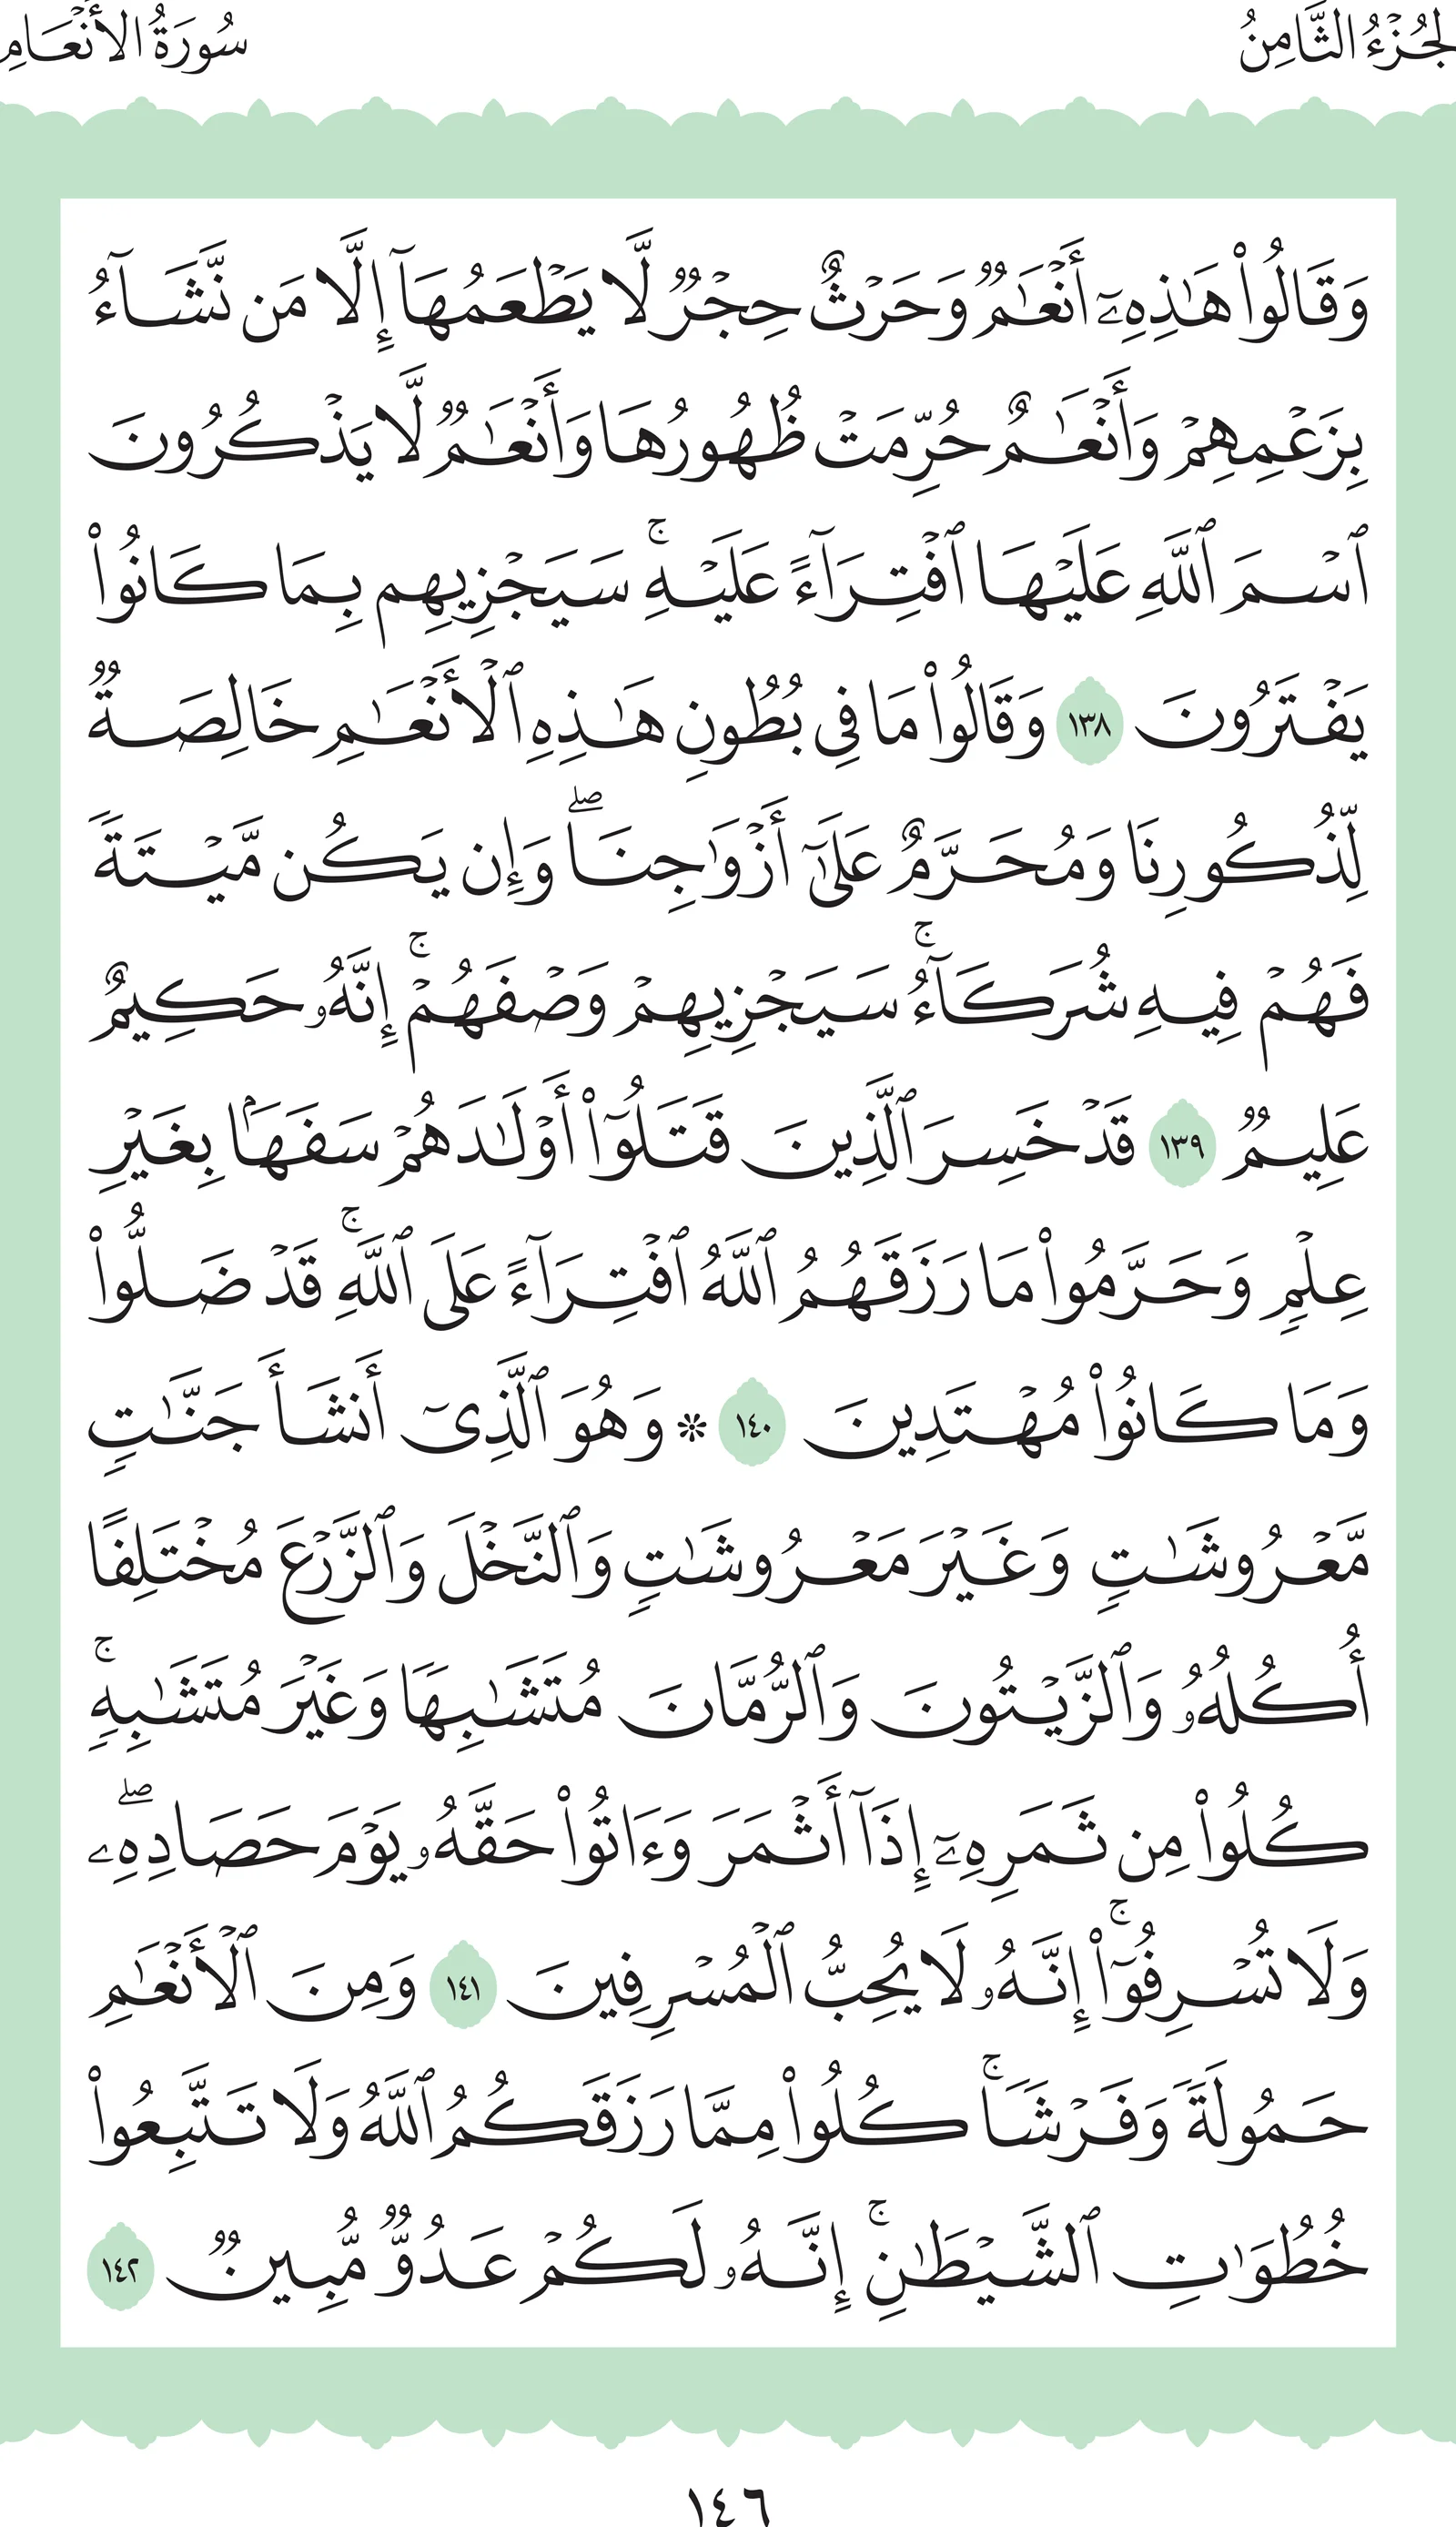 الجُزْءُ الثَّامِنُ
سُورَةُ الأَنْعَامِ
وَقَالُواْ هَٰذِهِۦٓ أَنۡعَٰمٞ وَحَرۡثٌ حِجۡرٞ لَّا يَطۡعَمُهَآ إِلَّا مَن نَّشَآءُ
بِزَعۡمِهِمۡ وَأَنۡعَٰمٌ حُرِّمَتۡ ظُهُورُهَا وَأَنۡعَٰمٞ لَّا يَذۡكُرُونَ
ٱسۡمَ ٱللَّهِ عَلَيۡهَا ٱفۡتِرَآءً عَلَيۡهِۚ سَيَجۡزِيهِم بِمَا كَانُواْ
يَفۡتَرُونَ ١٣٨ وَقَالُواْ مَا فِي بُطُونِ هَٰذِهِ ٱلۡأَنۡعَٰمِ خَالِصَةٞ
لِّذُكُورِنَا وَمُحَرَّمٌ عَلَىٰٓ أَزۡوَٰجِنَاۖ وَإِن يَكُن مَّيۡتَةٗ
فَهُمۡ فِيهِ شُرَكَآءُۚ سَيَجۡزِيهِمۡ وَصۡفَهُمۡۚ إِنَّهُۥ حَكِيمٌ
عَلِيمٞ ١٣٩ قَدۡ خَسِرَ ٱلَّذِينَ قَتَلُوٓاْ أَوۡلَٰدَهُمۡ سَفَهَۢا بِغَيۡرِ
عِلۡمٖ وَحَرَّمُواْ مَا رَزَقَهُمُ ٱللَّهُ ٱفۡتِرَآءً عَلَى ٱللَّهِۚ قَدۡ ضَلُّواْ
وَمَا كَانُواْ مُهۡتَدِينَ ١٤٠ ۞ وَهُوَ ٱلَّذِيٓ أَنشَأَ جَنَّٰتٖ
مَّعۡرُوشَٰتٖ وَغَيۡرَ مَعۡرُوشَٰتٖ وَٱلنَّخۡلَ وَٱلزَّرۡعَ مُخۡتَلِفًا
أُكُلُهُۥ وَٱلزَّيۡتُونَ وَٱلرُّمَّانَ مُتَشَٰبِهٗا وَغَيۡرَ مُتَشَٰبِهٖۚ
كُلُواْ مِن ثَمَرِهِۦٓ إِذَآ أَثۡمَرَ وَءَاتُواْ حَقَّهُۥ يَوۡمَ حَصَادِهِۦۖ
وَلَا تُسۡرِفُوٓاْۚ إِنَّهُۥ لَا يُحِبُّ ٱلۡمُسۡرِفِينَ ١٤١ وَمِنَ ٱلۡأَنۡعَٰمِ
حَمُولَةٗ وَفَرۡشٗاۚ كُلُواْ مِمَّا رَزَقَكُمُ ٱللَّهُ وَلَا تَتَّبِعُواْ
خُطُوَٰتِ ٱلشَّيۡطَٰنِۚ إِنَّهُۥ لَكُمۡ عَدُوّٞ مُّبِينٞ ١٤٢
١٤٦